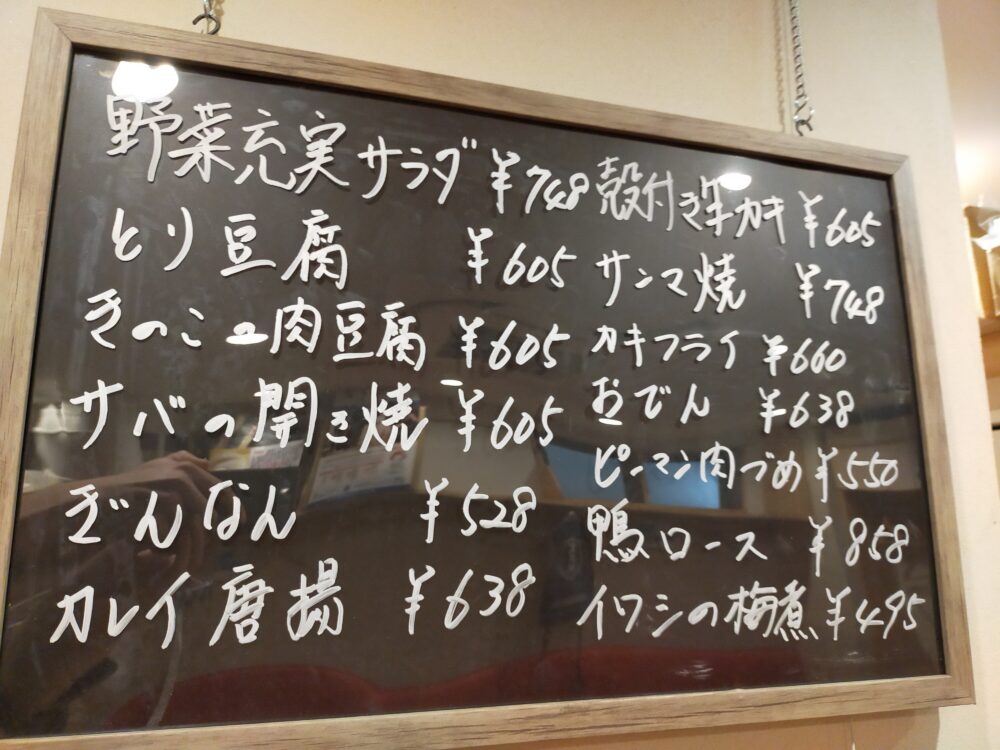 野菜充実サラダ ¥748
とり豆腐 ¥605
きのこ肉豆腐 ¥605
サバの開き焼 ¥605
ぎんなん ¥528
カレイ唐揚 ¥638
殻付き牛カキ ¥605
サンマ焼 ¥748
カキフライ ¥660
おでん ¥638
ピーマン肉づめ ¥550
鴨ロース ¥858
イワシの梅煮 ¥495